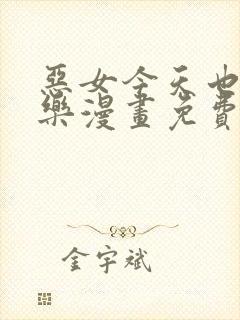 惡女今天也
樂漫畫免費
金宇斌